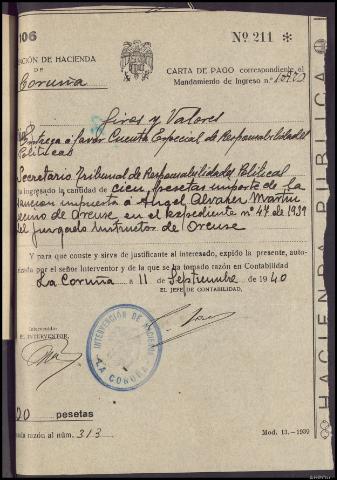 106
Nº 211 *
CIÓN DE HACIENDA
DE
Coruña
CARTA DE PAGO correspondiente el
Mandamiento de Ingreso n.º
Giros y Valores
Entrega a favor Cuenta Especial de Responsabilidades
Politicas
Secretario Tribunal de Responsabilidades Politicas
ha ingresado la cantidad de cien pesetas importe de la
sancion impuesta á Angel Alvarez Martin
vecino de Orense en el expediente nº 47 de 1939
del Juzgado Instructor de Orense
Y para que conste y sirva de justificante al interesado, expido la presente, auto-
rizada por el señor Interventor y de la que se ha tomado razón en Contabilidad
La Coruña a 11 de Septiembre de 1940
EL JEFE DE CONTABILIDAD,
Intervenido:
EL INTERVENTOR,
INTERVENCIÓN DE HACIENDA
LA CORUÑA
00 pesetas
razón al núm. 313
Mod. 13.-1939
HACIENDA PÚBLICA